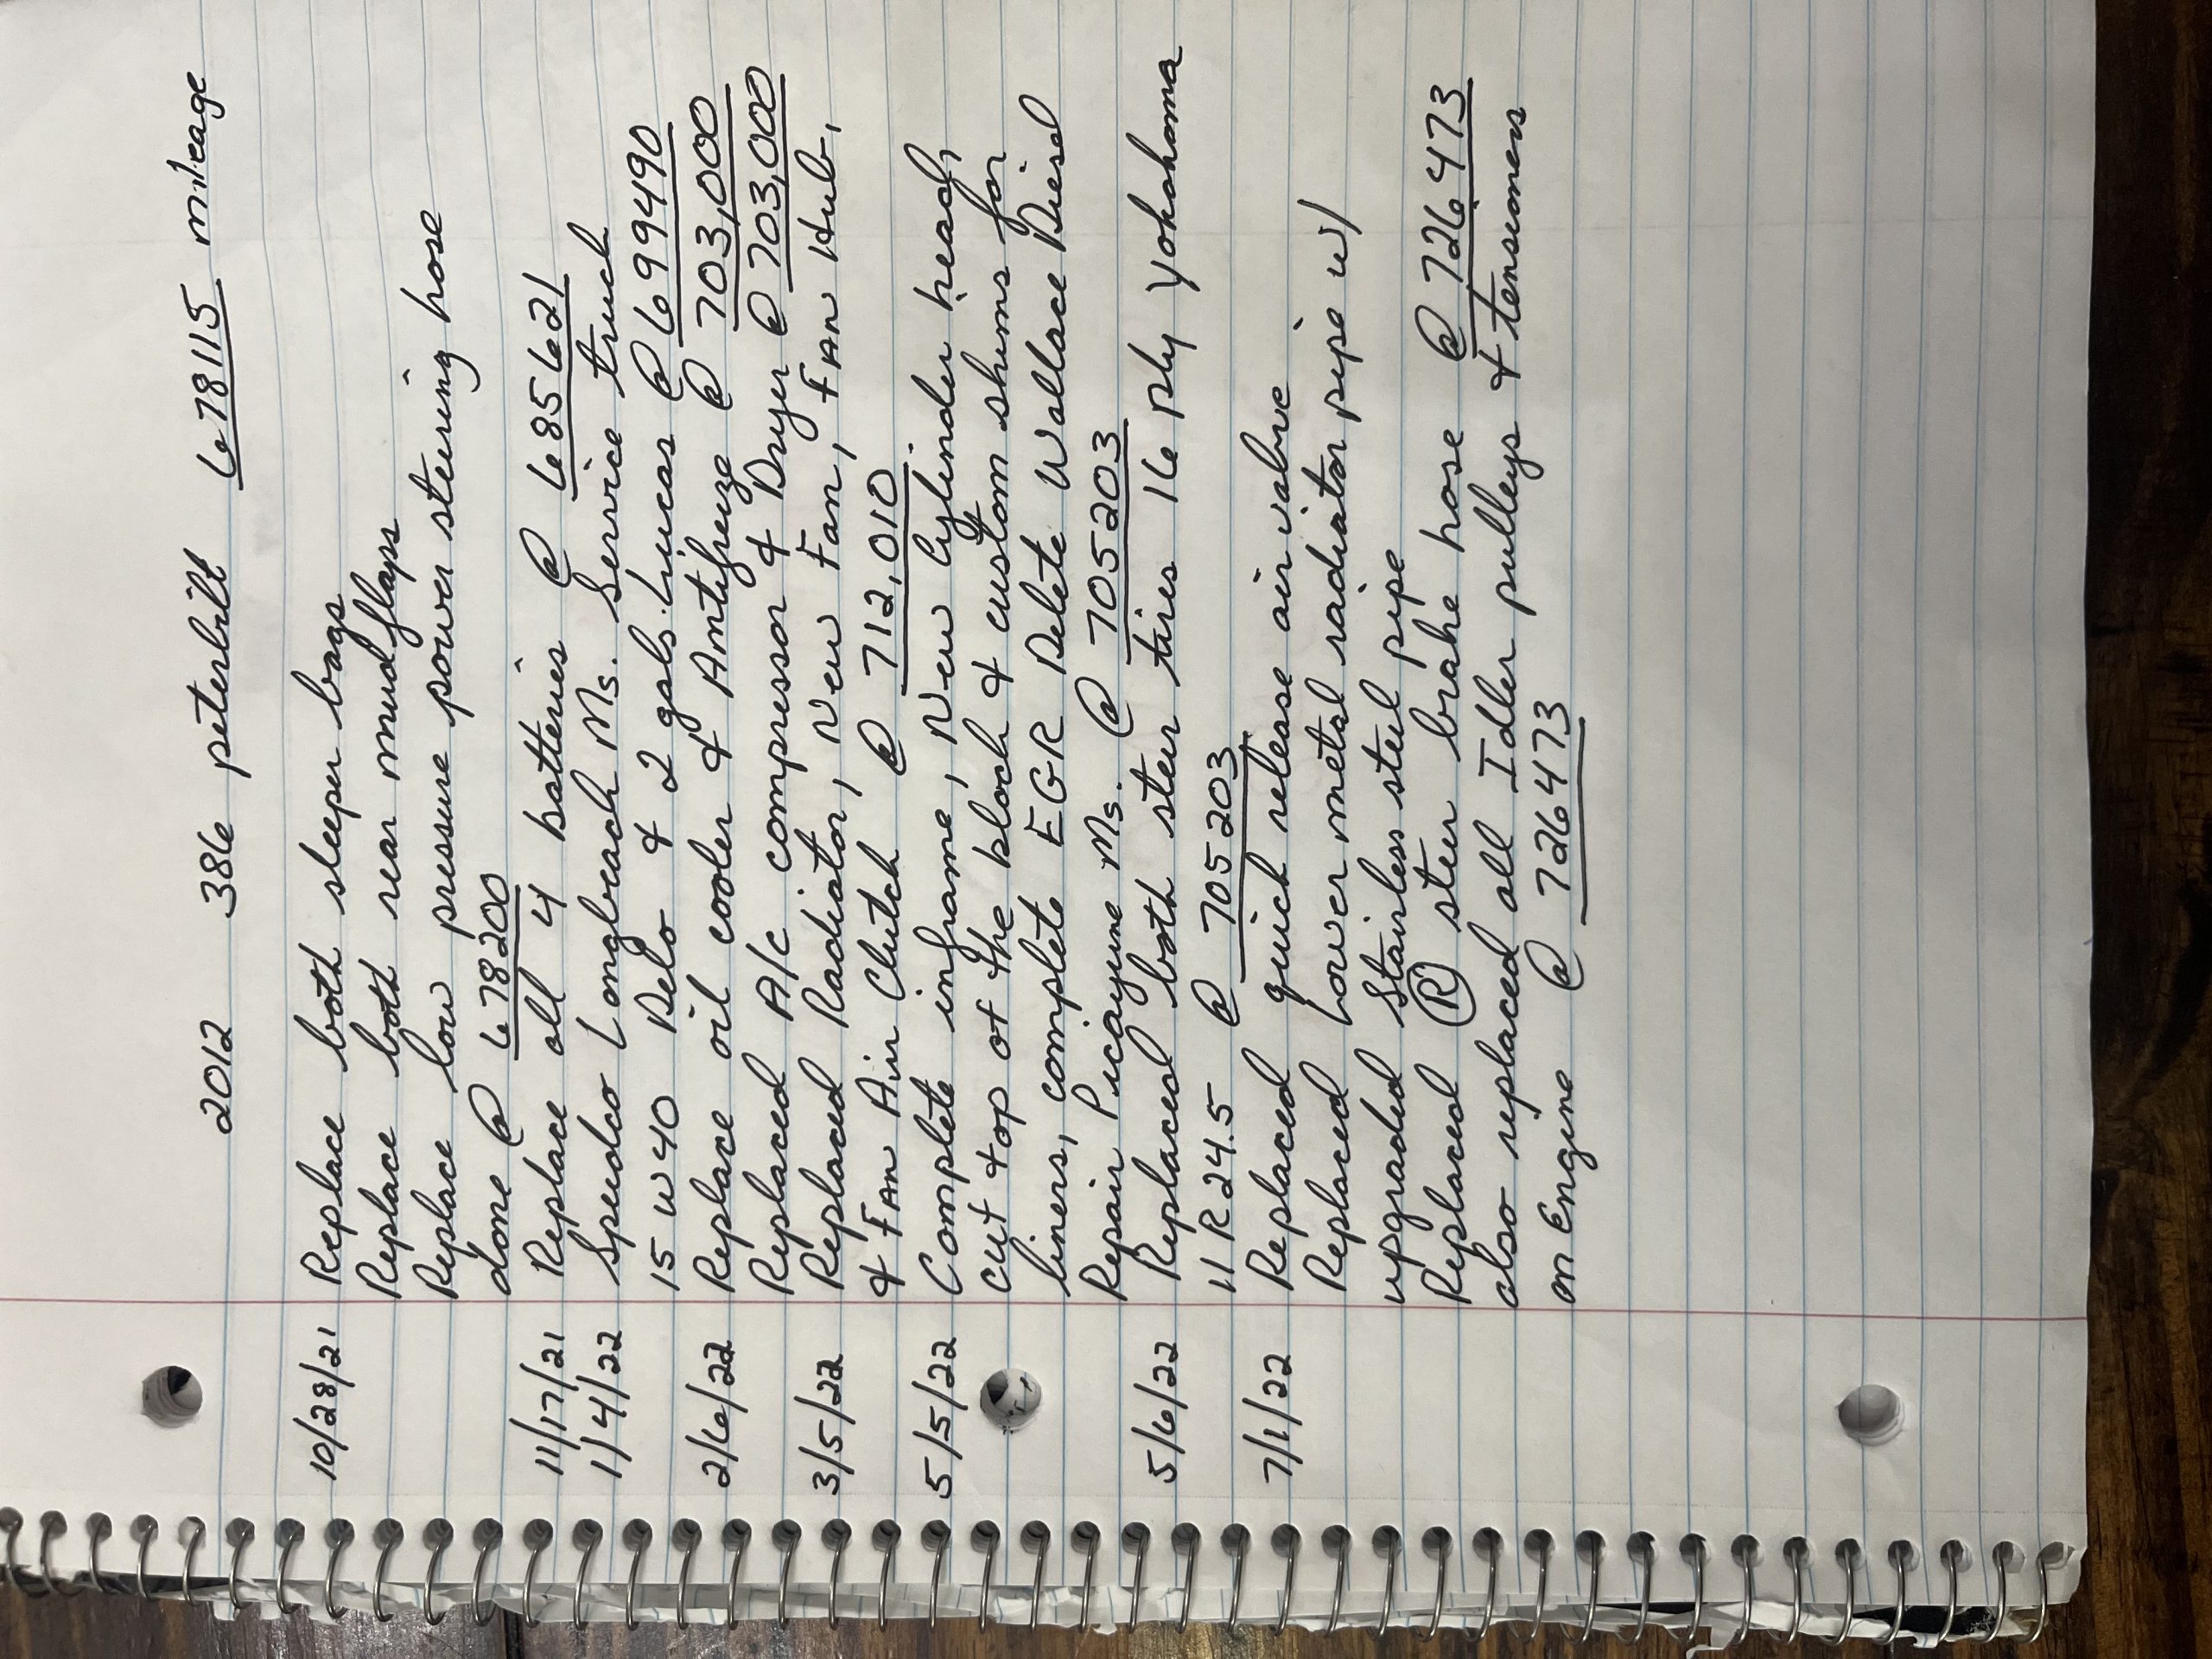 2012 386 peterbilt 678115 mileage
10/28/21 Replace both sleeper bags
Replace both rear mud flaps
Replace low pressure power steering hose
done @ 678200
11/17/21 Replace all 4 batteries @ 685621
1/4/22 Speedco Longbeach Ms. Service truck
15 w 40 Delo & 2 gals. Lucas @ 699490
2/6/22 Replace oil cooler & Antifreeze @ 703,000
Replaced A/c compressor & Dryer @ 703,000
3/5/22 Replaced Radiator, New Fan, Fan Hub,
& Fan Air Clutch @ 712,010
5/5/22 Complete inframe, New Cylinder head,
cut top of the block & custom shims for
liners, complete EGR Delete Wallace Diesel
Repair Picayune Ms. @ 705203
5/6/22 Replaced both steer tires 16 ply Yokohoma
11 R 24.5 @ 705203
7/1/22 Replaced quick release air valve
Replaced Lower metal radiator pipe w/
upgraded stainless steel pipe
Replaced R steer brake hose @ 726,473
also replaced all Idler pulleys & tensioners
on Engine @ 726473